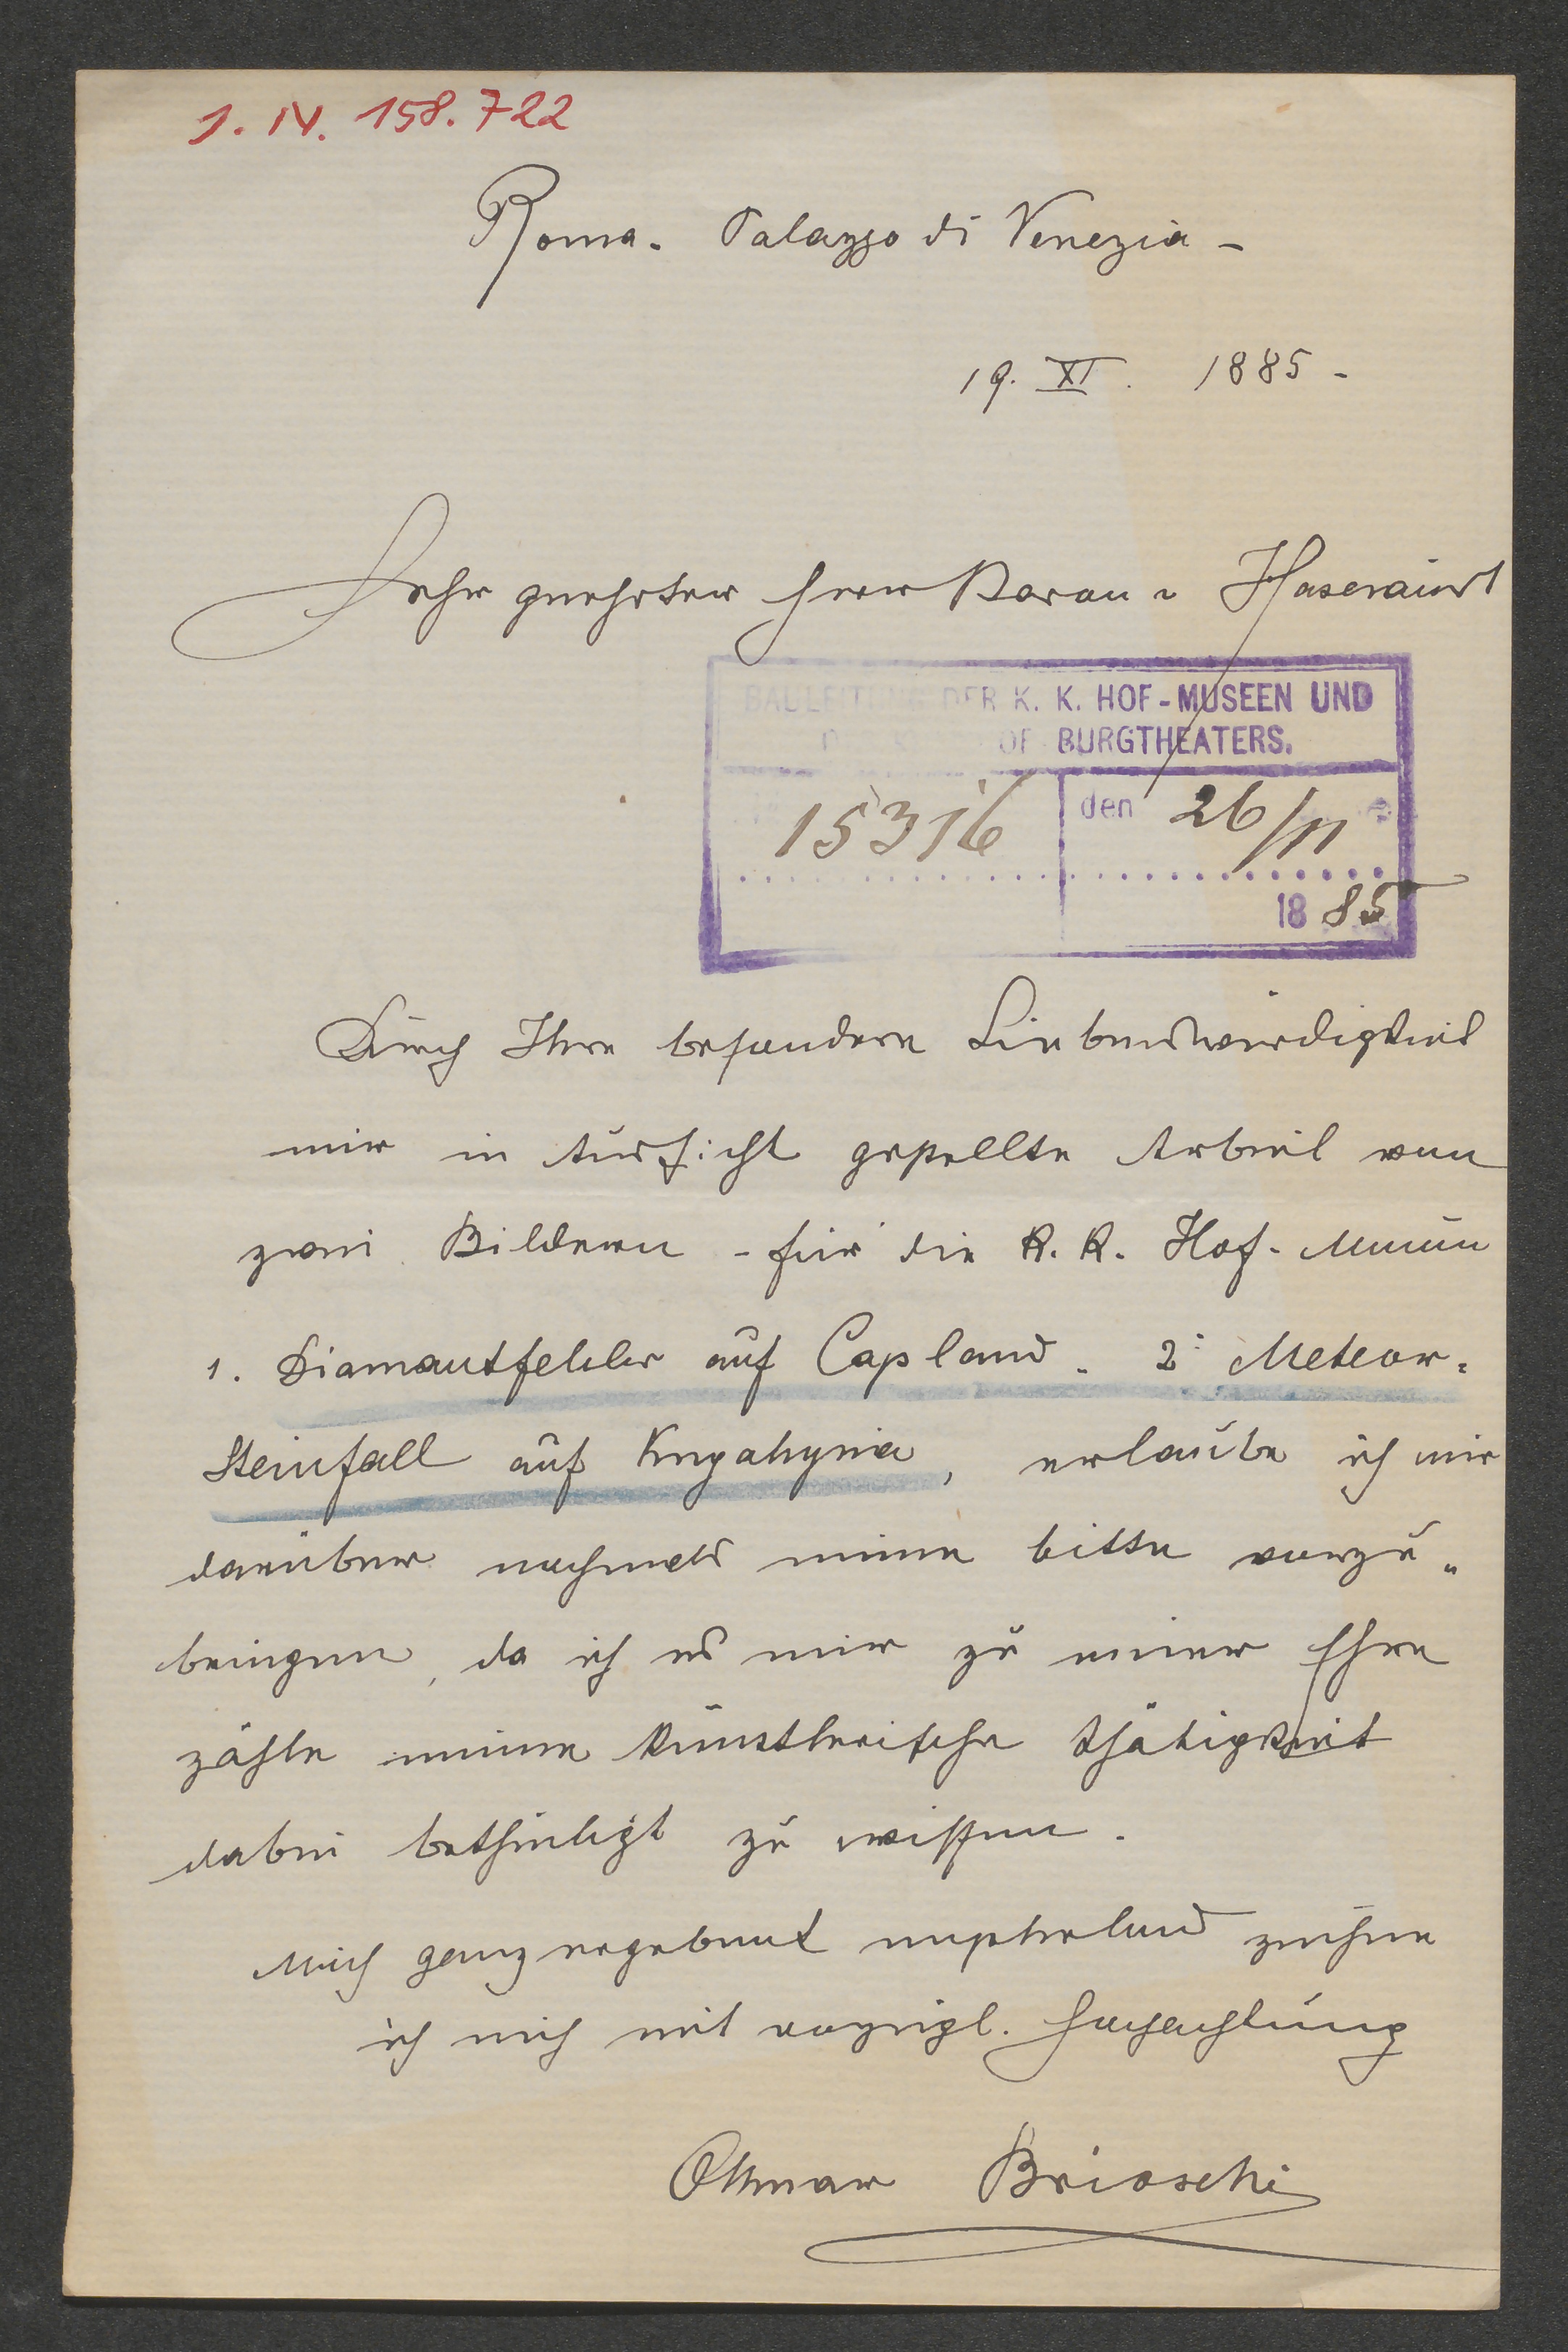 1. IV. 158.722
Roma. Palazzo di Venezia -
19. XI. 1885 -
Sehr geehrter Herr Baron v Hasenauer!
BAULEITUNG DER K. K. HOF-MUSEEN UND
OF BURGTHEATERS.
15316 den 26/11
1885
Durch Ihre besondere Liebenswürdigkeit
mir in Aussicht gestellte Arbeit von
zwei Bildern - für die K. K. Hof-Museen
1. Diamantfelder auf Capland. 2. Meteor-
Steinfall auf Knyahynia, erlaube ich mir
darüber nochmals meine bitte vorzu-
bringen, da ich es mir zu einer Ehre
zähle meine künstlerische thätigkeit
dabei betheiligt zu wissen.
Mich ganz ergebenst empfehlend zeichne
ich mich mit vorzügl. Hochachtung
Othmar Brioschi